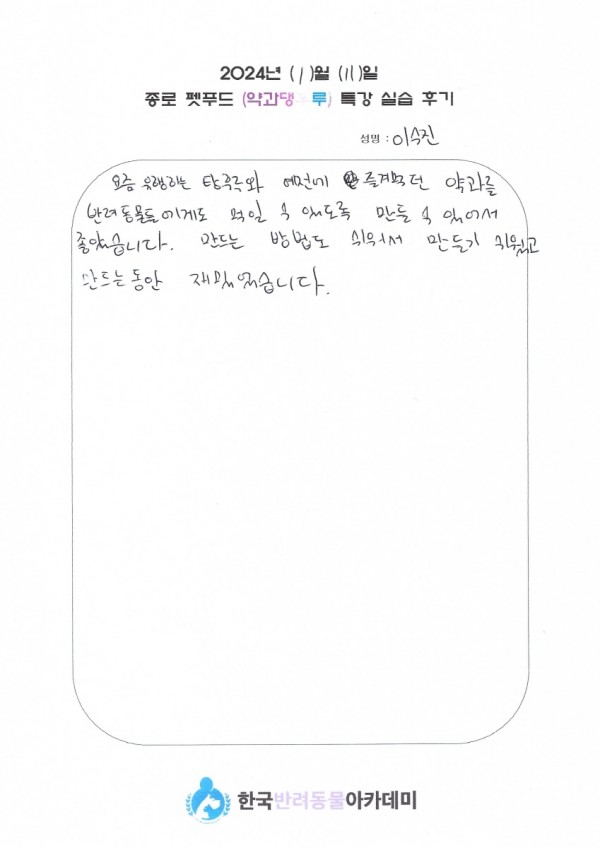 2024년 (1)월 (11)일
종로 펫푸드 (약과댕 루) 특강 실습 후기
성명 : 이수진
요즘 유행하는 탕후루와 예전에 즐겨먹던 약과를
반려동물들에게도 먹일 수 있도록 만들 수 있어서
좋았습니다. 만드는 방법도 쉬워서 만들기 쉬웠고
만드는동안 재밌었습니다.
한국반려동물아카데미